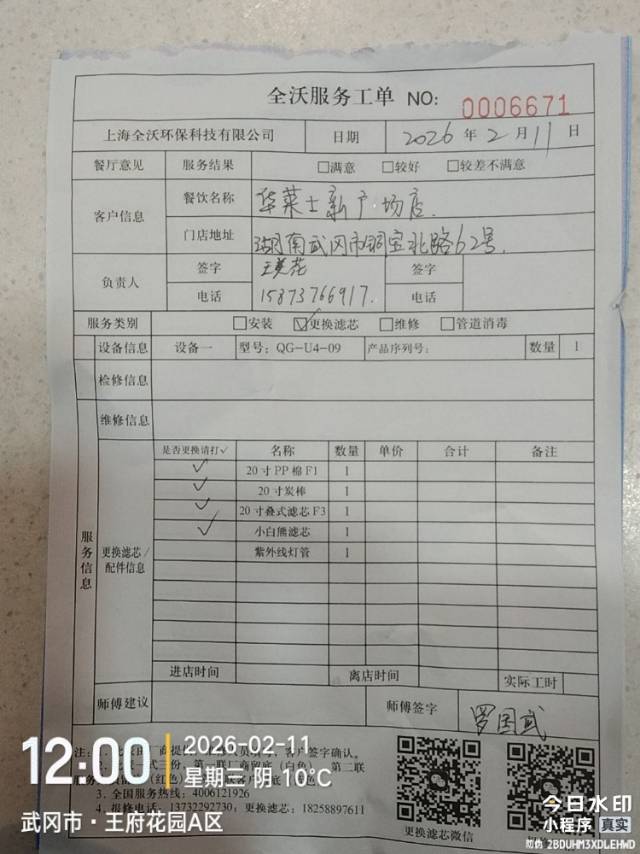 全沃服务工单 NO: 0006671
上海全沃环保科技有限公司 日期 2026 年 2 月 11 日
餐厅意见 服务结果 □满意 □较好 □较差不满意
客户信息 餐饮名称 华莱士新广场店.
门店地址 湖南武冈市铜宝北路62号.
负责人 签字 王美花 签字
电话 15873766917. 电话
服务类别 □安装 ☑更换滤芯 □维修 □管道消毒
设备信息 设备一 型号: QG-U4-09 产品序列号: 数量 1
检修信息
维修信息
服务信息 更换滤芯/配件信息
是否更换请打√ 名称 数量 单价 合计 备注
√ 20寸PP棉F1 1
√ 20寸炭棒 1
√ 20寸叠式滤芯F3 1
√ 小白熊滤芯 1
紫外线灯管 1
进店时间 离店时间 实际工时
师傅建议 师傅签字 罗国武
客户签字确认。
一式三份,第一联厂商留底(白色),第二联
(红色)
3. 全国服务热线: 4006121926
4. 报修电话: 13732292730; 更换滤芯: 18258897611
更换滤芯微信
12:00 2026-02-11
星期三 阴 10℃
武冈市·王府花园A区
今日水印
小程序 真实
防伪 2BDUHM3XDLEHWD